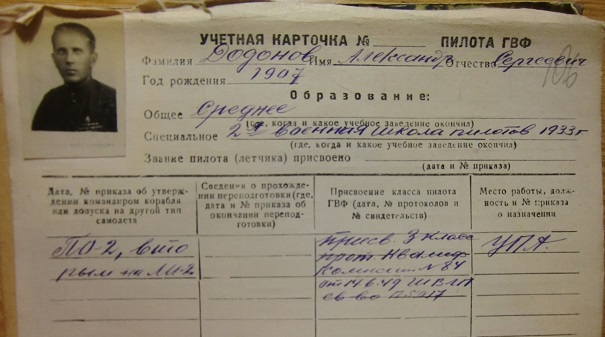 УЧЕТНАЯ КАРТОЧКА № ПИЛОТА ГВФ
Фамилия Додонов Имя Александр Отчество Сергеевич
106
Год рождения 1907
Образование:
Общее Среднее
(где, когда и какое учебное заведение окончил)
Специальное 2я военная школа пилотов 1933г
(где, когда и какое учебное заведение окончил)
Звание пилота (летчика) присвоено
(дата и № приказа)
Дата, № приказа об утверждении командиром корабля или допуска на другой тип самолета
Сведения о прохождении переподготовки (где, дата и № приказа об окончании переподготовки)
Присвоение класса пилота ГВФ (дата, № протоколов и № свидетельств)
Место работы, должность и № приказа о назначении
ПО-2, вто
рым на ЛИ-2
Присв. 3 класс
прот Квалиф
Комиссии N 84
от 14.6.49
св во
УПА.